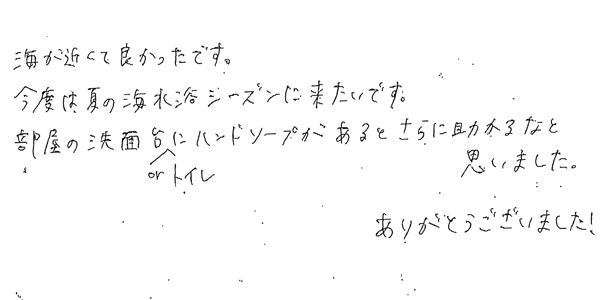 海が近くて良かったです。
今度は夏の海水浴シーズンに来たいです。
部屋の洗面台にハンドソープがあるとさらに助かるなと
or トイレ
思いました。
ありがとうございました!